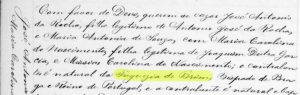 Com favor de Deus, querem se cazar José Antonio
da Rocha, filho legitimo de Antonio José da Rocha,
e Maria Antonia de Souza, com Maria Carolina
do Nascimento, filha legitima de Joaquim
e Carolina do Nascimento; o contrahente
é natural da Freguezia de Bispado de Bra
ga Reino de Portugal, e a contrahente é natural e